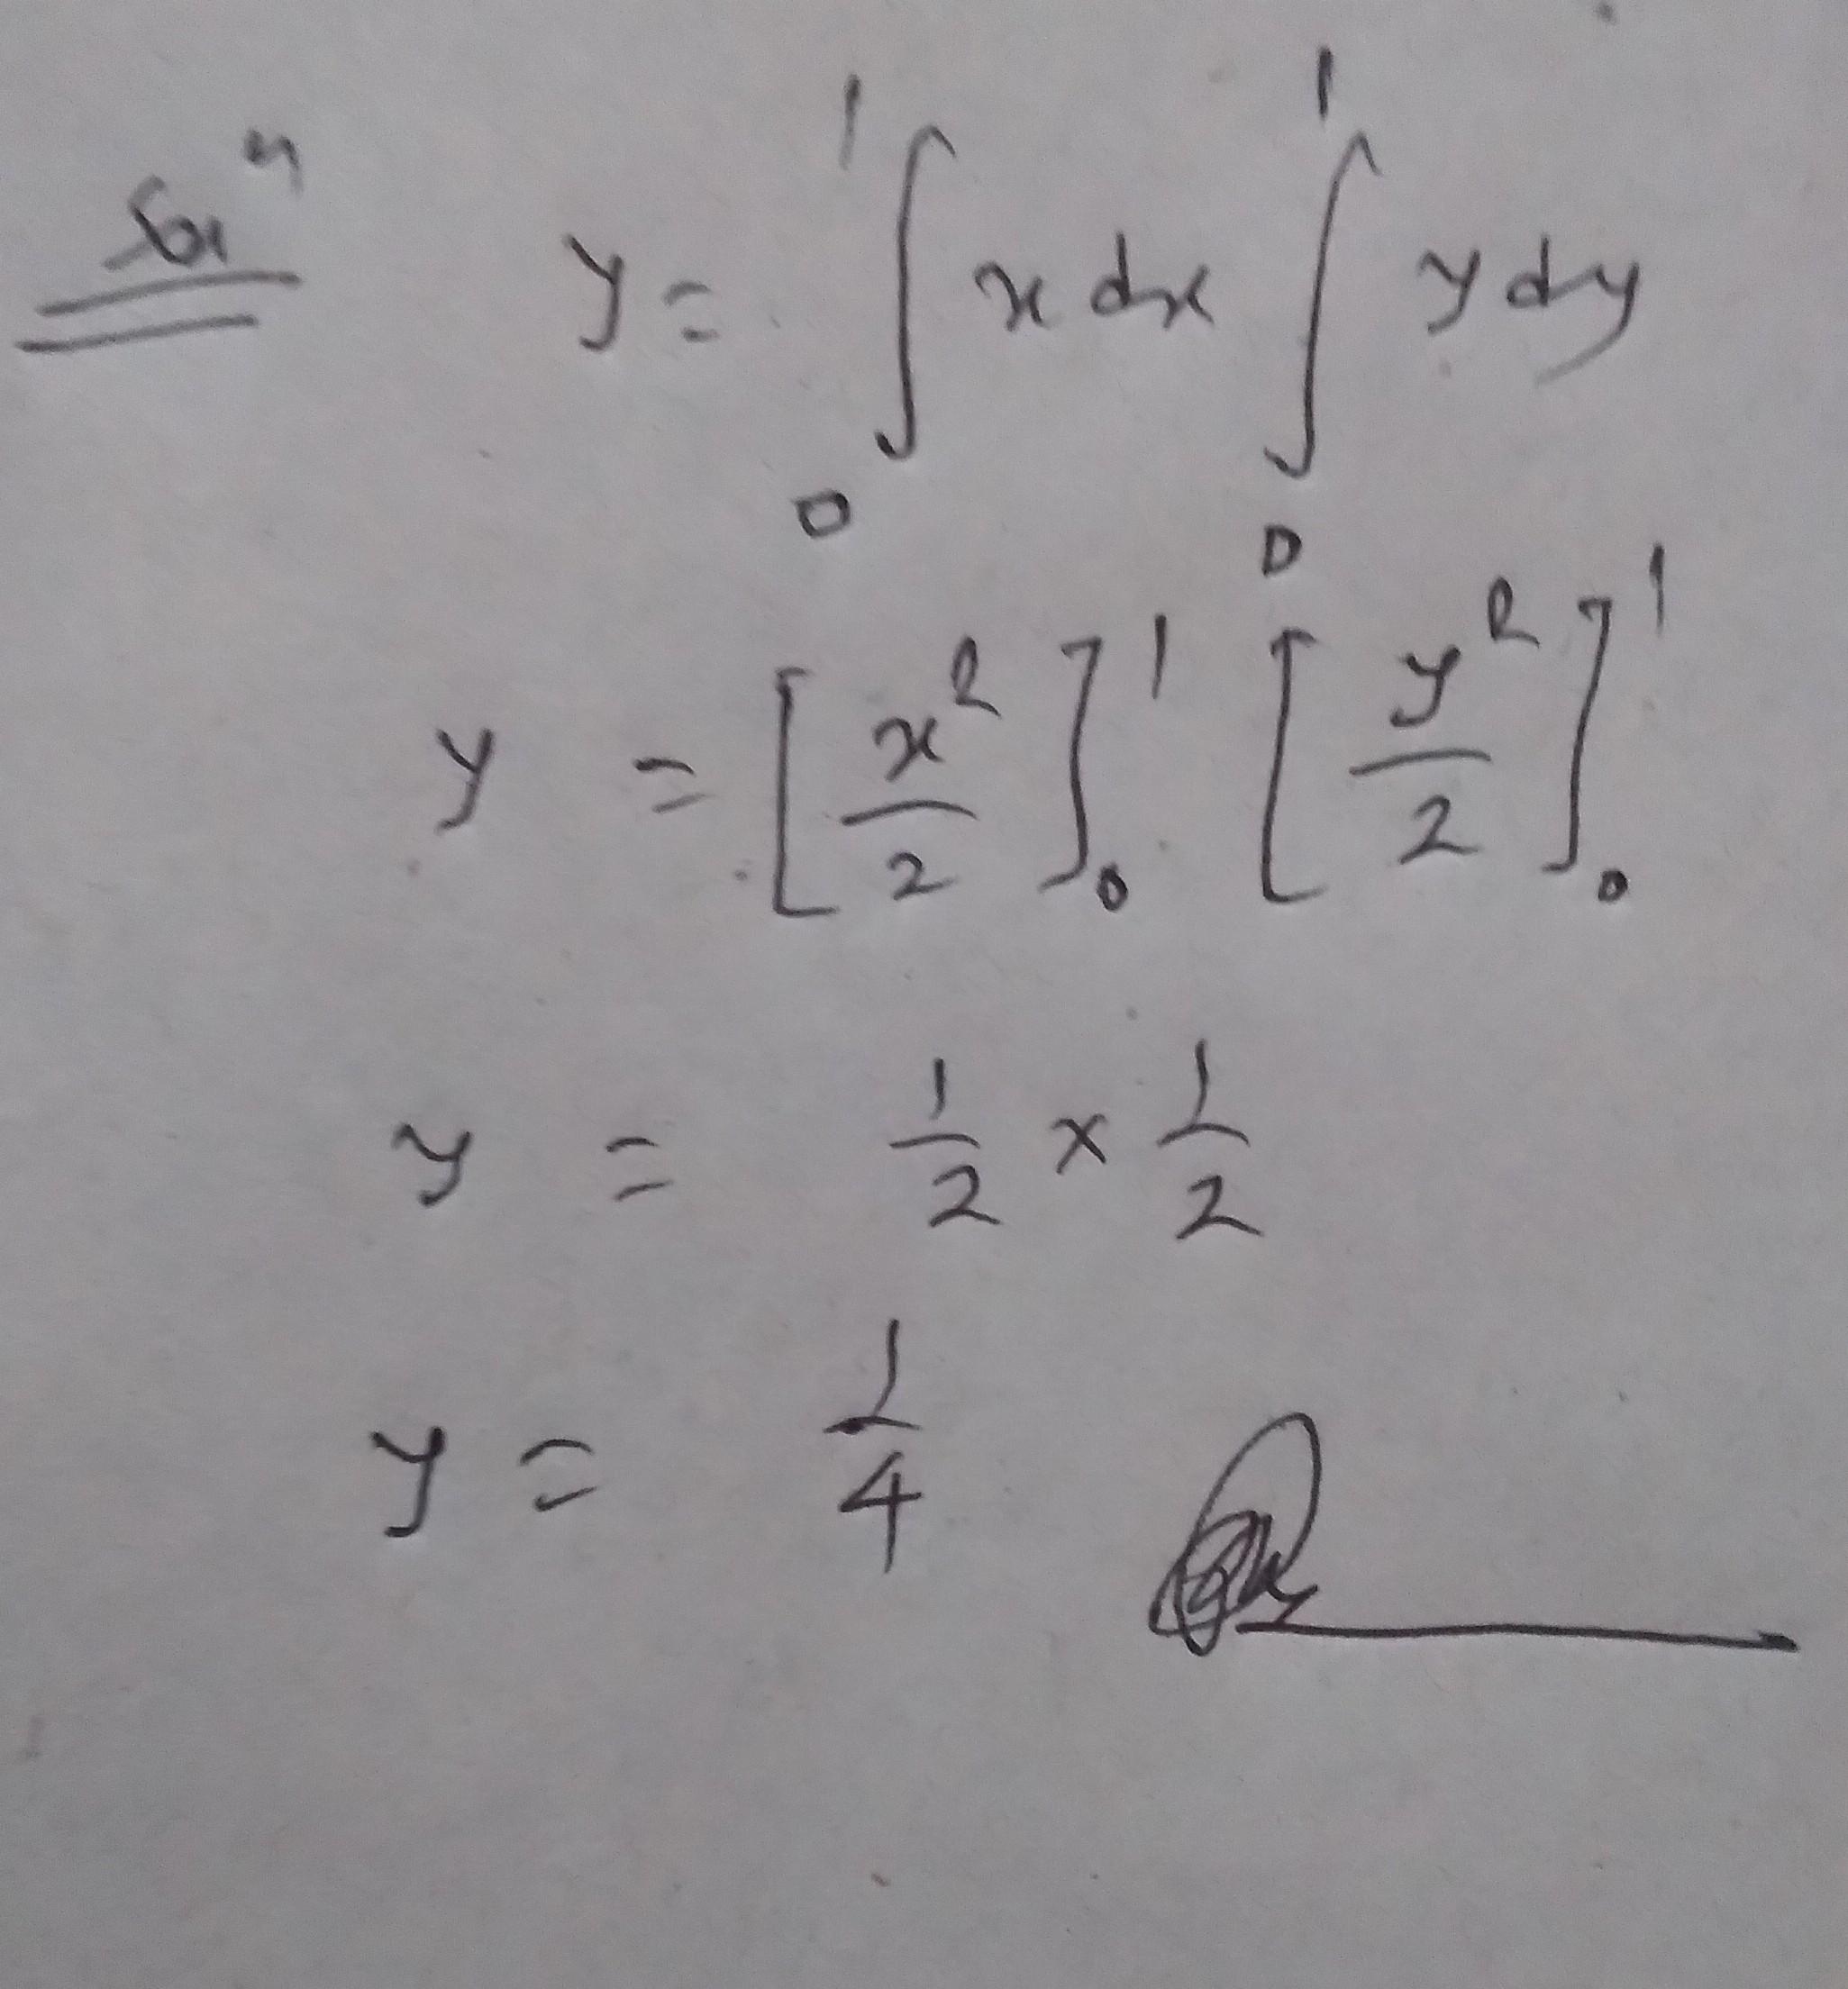 Solⁿ y = ∫₀¹ x dx ∫₀¹ y dy
y = [x²/2]₀¹ [y²/2]₀¹
y = 1/2 × 1/2
y = 1/4